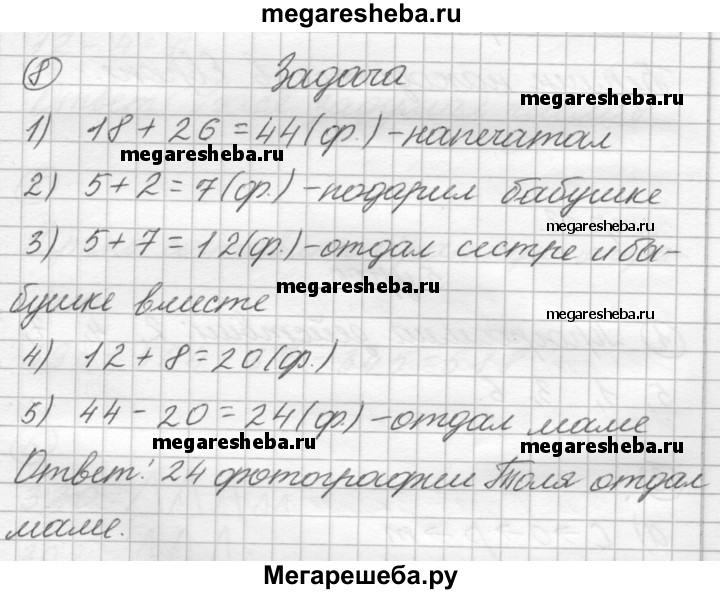 megaresheba.ru
⑧ Задача
megaresheba.ru
1) 18 + 26 = 44 (ф.) – напечатал
megaresheba.ru
2) 5 + 2 = 7 (ф.) – подарил бабушке
megaresheba.ru
3) 5 + 7 = 12 (ф.) – отдал сестре и ба-
megaresheba.ru
бушке вместе
megaresheba.ru
4) 12 + 8 = 20 (ф.)
5) 44 – 20 = 24 (ф.) – отдал маме
megaresheba.ru
megaresheba.ru
Ответ: 24 фотографии Толя отдал
маме.
Мегарешеба.ру